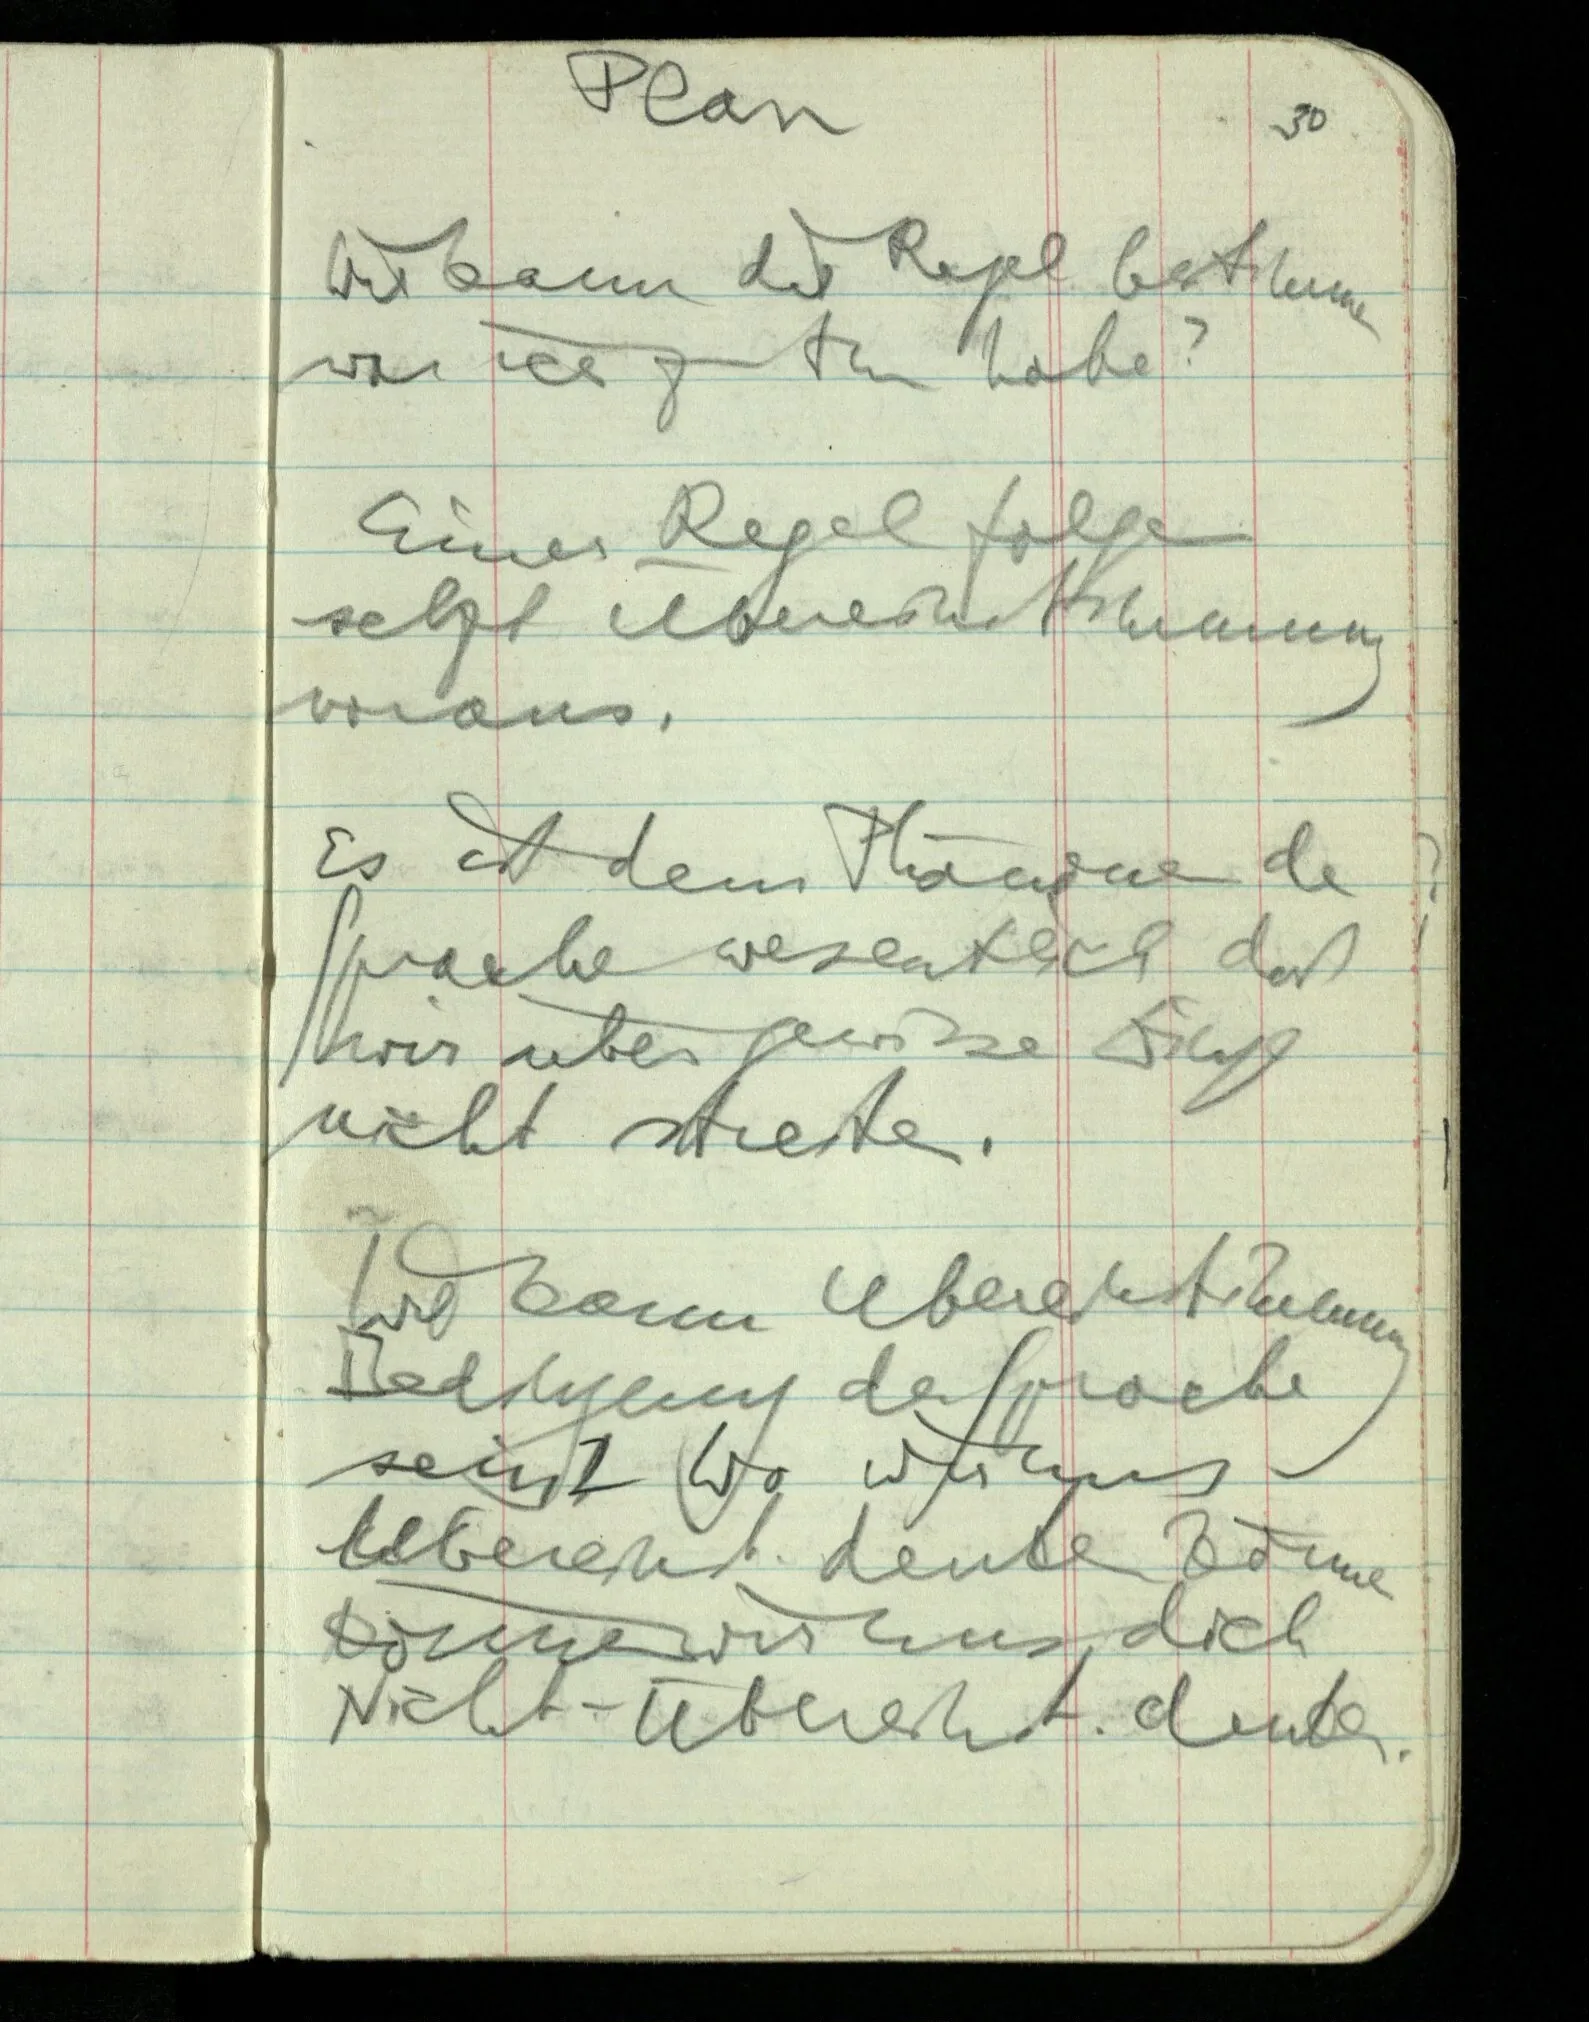 Plan
30
Wie kann die Regel bestimmen
was ich zu tun habe?
Einer Regel folgen
setzt Übereinstimmung
voraus.
Es ist dem Phänomen der
Sprache wesentlich daß
wir über gewisse Dinge
nicht streiten.
Wie kann Übereinstimmung
Bedingung der Sprache
sein? Wo wir uns
Übereinst. denken können
können wir uns doch
Nicht-Übereinst. denken.